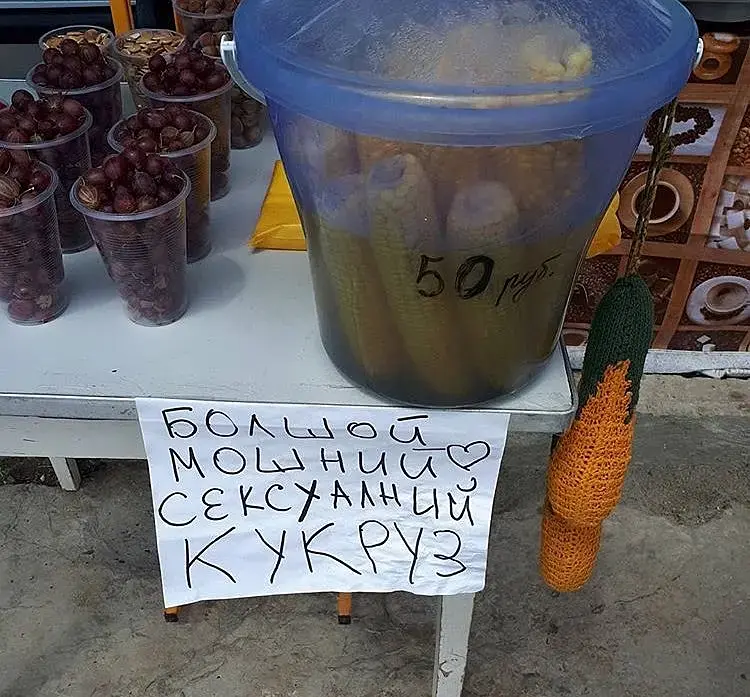 50 руб.
БОЛШОЙ
МОШНИЙ
СЕКСУАЛНИЙ
КУКРУЗ